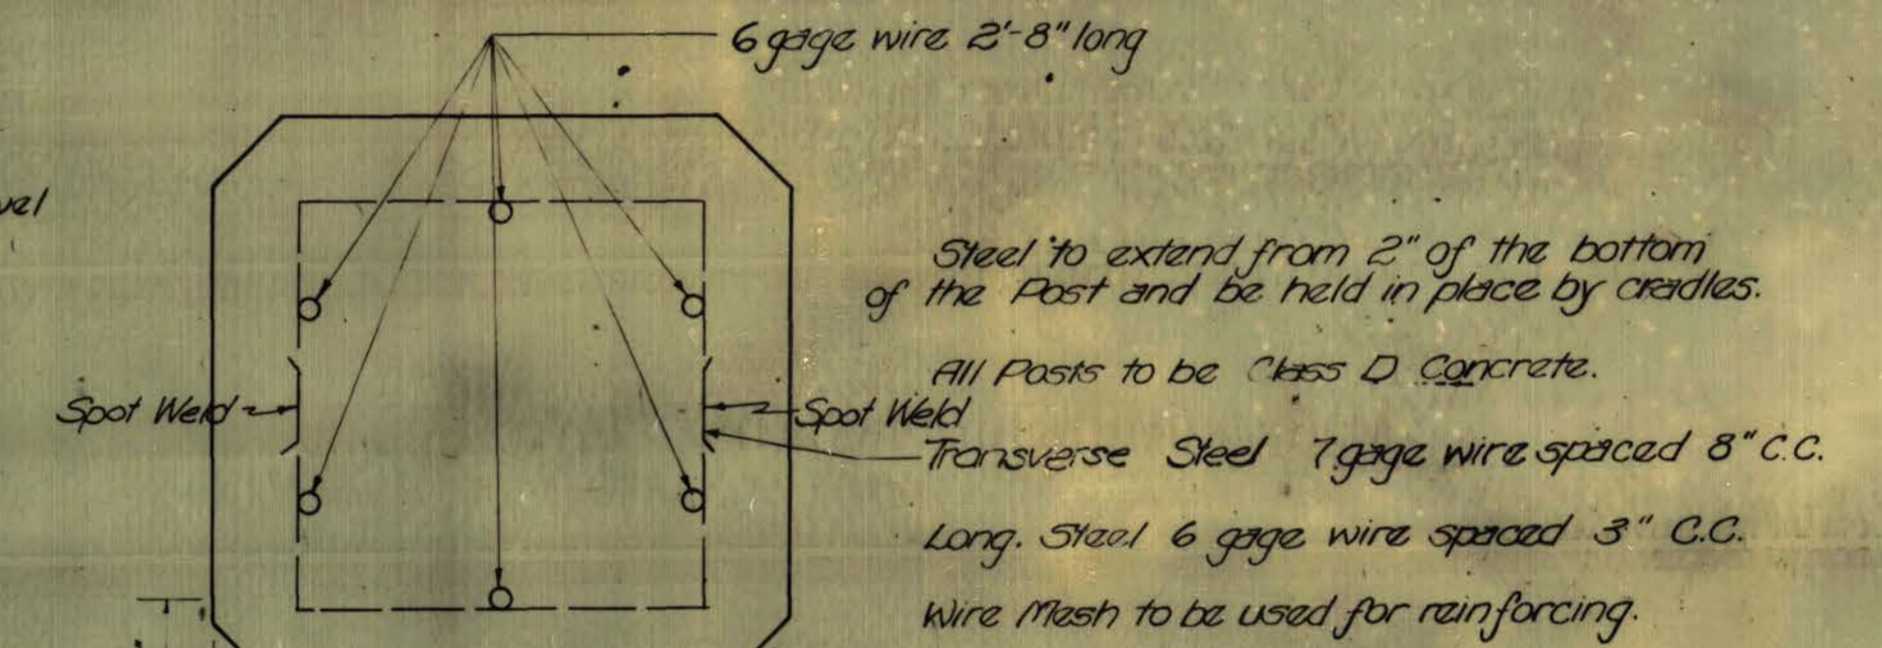 6 gage wire 2'-8" long
vel
Steel to extend from 2" of the bottom
of the Post and be held in place by cradles.
All Posts to be Class D Concrete.
Spot Weld
Spot Weld
Transverse Steel 7 gage wire spaced 8" C.C.
Long. Steel 6 gage wire spaced 3" C.C.
Wire Mesh to be used for reinforcing.